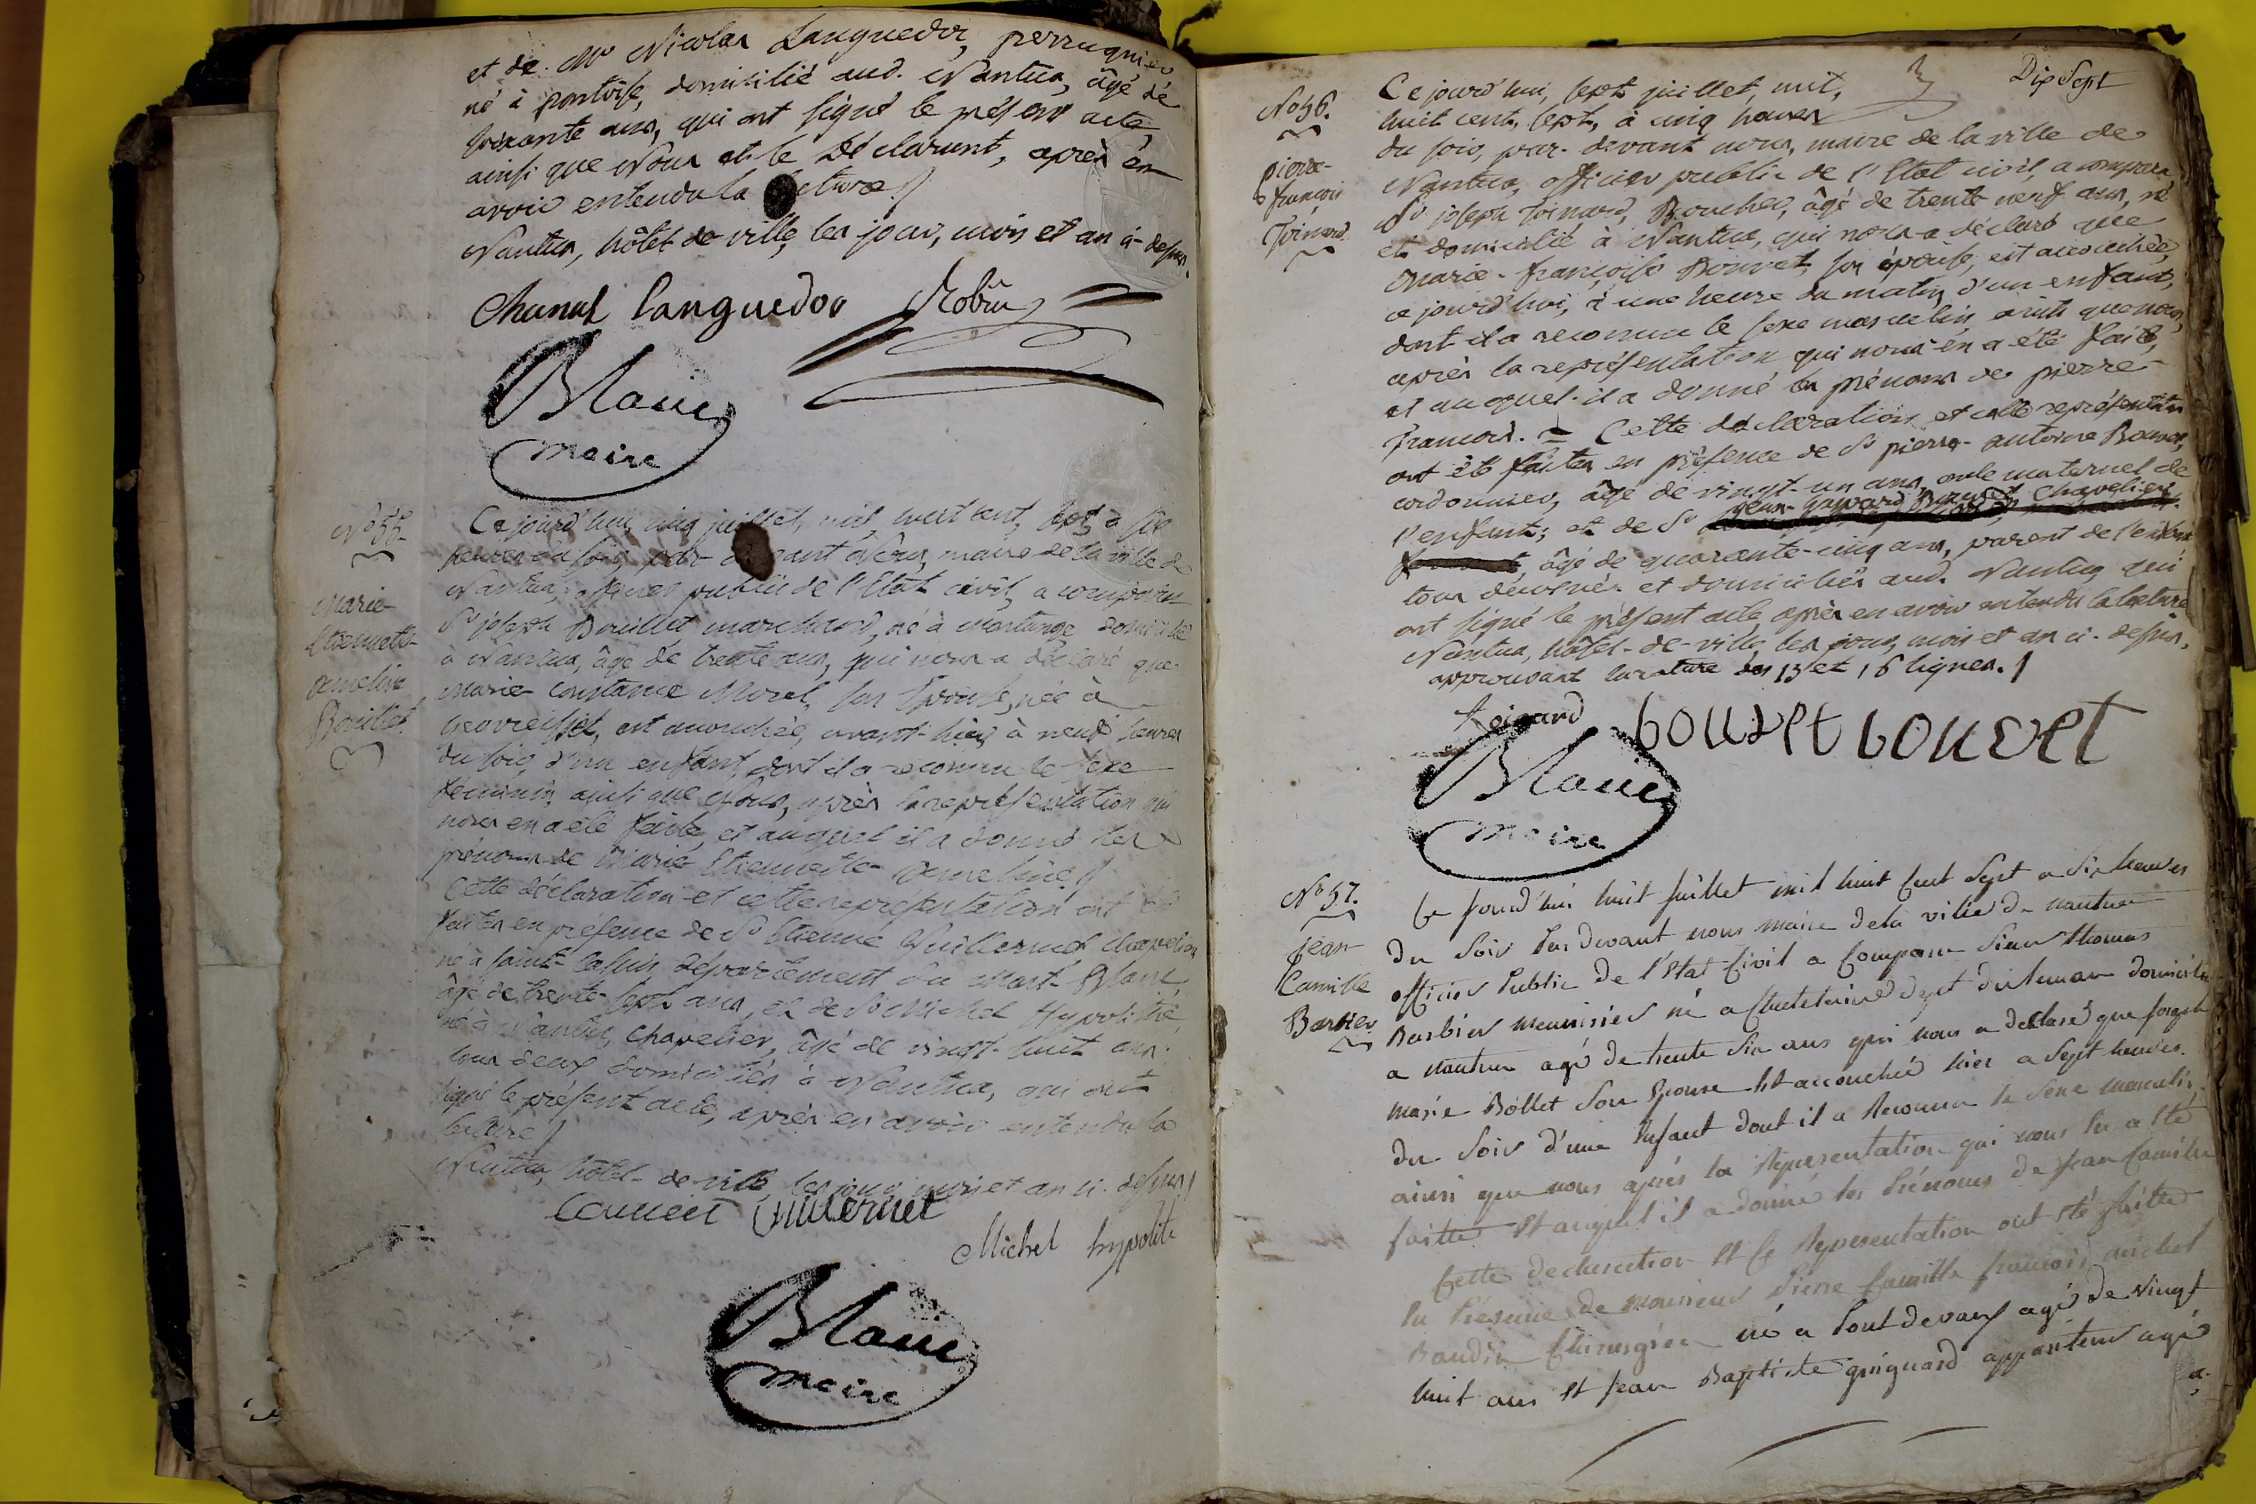 et de Mr Nicolas Languedoc, perruquier
né à pontoise, domicilié aud. Nantua, âgé de
soixante ans, qui ont signé le présent acte,
ainsi que Nous et le Déclarant, après en
avoir entendu la lecture.
Nantua, hôtel de ville, les jour, mois et an ci-dessus.
Chanal Languedoc Robin
Blanc
maire
No 55.
Marie
Etiennette
ameline
Bouillet
Ce jourd'hui, cinq juillet, mil, huit cent, sept, à six
heures du soir, par devant Nous, maire de la ville de
Nantua, officier public de l'Etat civil, a comparu
Sr joseph Bouillet marchand, né à domicilié
à Nantua, âgé de trente ans, qui nous a déclaré que
Marie Constance Morel, son Epouse, née à
Geovreisset, est accouchée, avant-hier, à neuf heures
du soir, d'un enfant, dont il a reconnu le sexe
féminin, ainsi que Nous, après la représentation qui
nous en a été faite, et auquel il a donné les
prénoms de Marie Etiennette ameline.
Cette déclaration et cette représentation ont été
faites en présence de Sr Etienne Guillermet, chapelier
né à saint-Cassin, département du Mont-Blanc,
âgé de trente-sept ans, et de Sr Michel Hypolithe,
né à Nantua, chapelier, âgé de vingt-huit ans.
tous deux domiciliés à Nantua, qui ont
signé le présent acte, après en avoir entendu la
lecture.
Nantua, hôtel-de-ville, les jour, mois et an ci-dessus.
Michel hypolite
Blanc
maire
Dix Sept
No 56.
pierre-
françois
Joinard.
Ce jourd'hui, sept juillet, mil,
huit cent, sept, à cinq heures
du soir, par-devant nous, maire de la ville de
Nantua, officier public de l'Etat civil, a comparu
Sr joseph Joinard, Boucher, âgé de trente neuf ans, né
et domicilié à Nantua, qui nous a déclaré que
Marie-françoise Bouvet, son épouse, est accouchée,
ce jourd'hui, à une heure du matin, d'un enfant,
dont il a reconnu le sexe masculin, ainsi que nous,
après la représentation qui nous en a été faite,
et auquel il a donné les prénoms de pierre-
francois. Cette déclaration et cette représentation
ont été faites en présence de Sr pierre-antoine Bouvet,
cordonnier, âgé de vingt-un ans, oncle maternel de
l'enfant; et de Sr jean-gaspard Bouvet, Chapelier,
âgé de quarante-cinq ans, parent de l'enfant
tous deux nés et domiciliés aud. Nantua, qui
ont signé le présent acte après en avoir entendu la lecture
Nantua, hôtel-de-ville, les jour, mois et an ci-dessus,
approuvant la rature des 15 et 16 lignes.
Joinard bouvet bouvet
Blanc
maire
No 57.
Jean
Camille
Barbier
Ce jourd'hui huit juillet mil huit Cent Sept a Six heures
du Soir Par devant nous maire de la ville de nantua
officier Public de l'Etat Civil a Comparu Sieur thomas
Barbier menuisier né a dept du leman domicilié
a nantua agé de trente Six ans qui nous a declaré que joseph
marie Bollet Son Epouse Est accouchée hier a Sept heures
du Soir d'une Enfant dont il a Reconnu le Sexe masculin
ainsi que nous après la Representation qui nous En a Eté
faitte Et auquel il a donné les Prénoms de Jean Camille
Cette declaration Et Ce Representation ont Eté faitte
En Présence de monsieur Pierre Camille françois michel
Baudin Chirurgien né a Pont devaux agé de vingt
huit ans Et Jean Baptiste guiguard appariteur agé